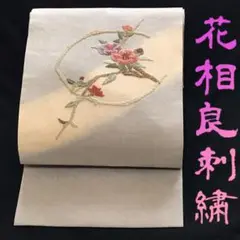 花相良刺繍